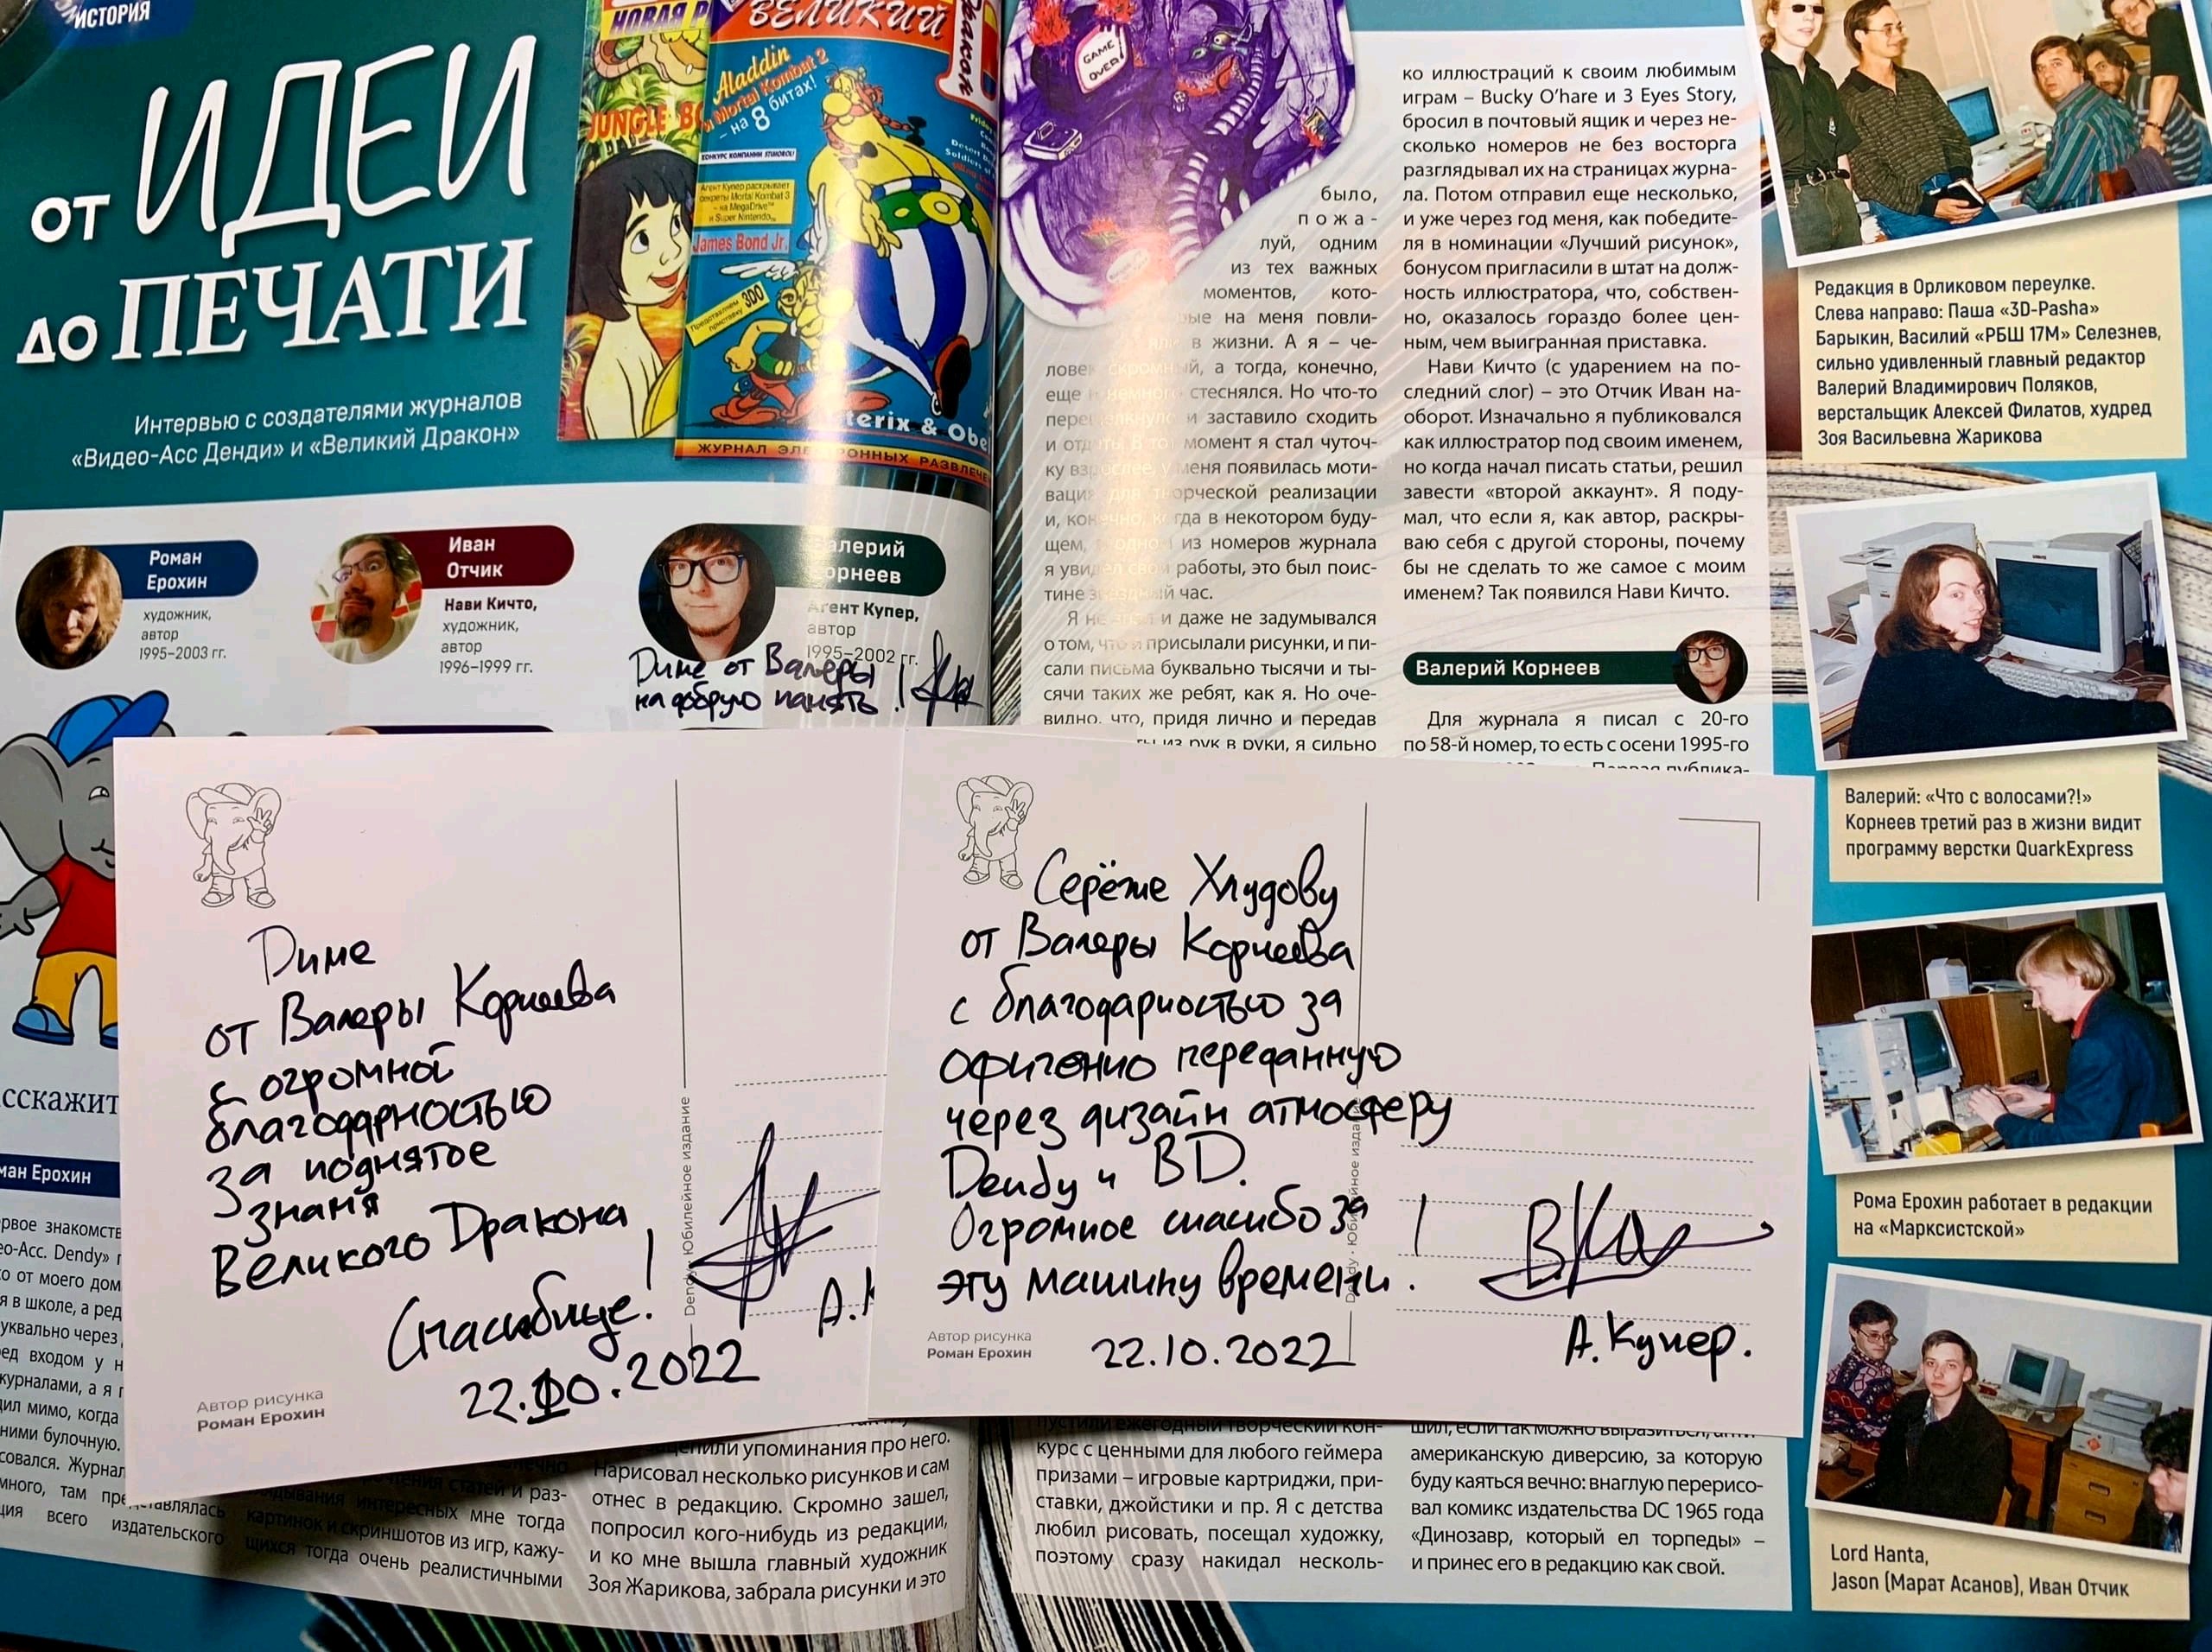 ИСТОРИЯ
от ИДЕИ
до ПЕЧАТИ
Интервью с создателями журналов
«Видео-Асс Денди» и «Великий Дракон»
НОВАЯ
JUNGLE
ВЕЛИКИЙ
Дракон
Aladdin
и Mortal Kombat 2
- на 8 битах!
КОНКУРС КОМПАНИИ STIMOROL!
Агент Купер раскрывает
секреты Mortal Kombat 3
- на MegaDrive
и Super Nintendo
James Bond Jr.
Представляем
приставку 3DO
terix & Obe
ЖУРНАЛ ЭЛЕКТРОННЫХ РАЗВЛЕЧЕ
GAME
OVER!
Роман
Ерохин
художник,
автор
1995–2003 гг.
Иван
Отчик
Нави Кичто,
художник,
автор
1996–1999 гг.
Валерий
Корнеев
Агент Купер,
автор
1995–2002 гг.
Диме от Валеры
на добрую память!
сскажит
ман Ерохин
рвое знакомств
ео-Асс. Dendy»
о от моего дом
я в школе, а ред
уквально через
ед входом у н
журналами, а я
дил мимо, когда
ними булочную.
совался. Журнал
много, там представлялась
ция всего издательского
чтения статей и раз-
глядывания интересных мне тогда
картинок и скриншотов из игр, кажу-
щихся тогда очень реалистичными
ценили упоминания про него.
Нарисовал несколько рисунков и сам
отнес в редакцию. Скромно зашел,
попросил кого-нибудь из редакции,
и ко мне вышла главный художник
Зоя Жарикова, забрала рисунки и это
было,
пожа-
луй, одним
из тех важных
моментов, кото-
рые на меня повли-
яли в жизни. А я – че-
ловек скромный, а тогда, конечно,
еще и немного стеснялся. Но что-то
перещелкнуло и заставило сходить
и отдать. В тот момент я стал чуточ-
ку взрослее, у меня появилась моти-
вация для творческой реализации
и, конечно, когда в некотором буду-
щем, в одном из номеров журнала
я увидел свои работы, это был поис-
тине звездный час.
Я не знал и даже не задумывался
о том, что и присылали рисунки, и пи-
сали письма буквально тысячи и ты-
сячи таких же ребят, как я. Но оче-
видно, что, придя лично и передав
из рук в руки, я сильно
пустили ежегодный творческий кон-
курс с ценными для любого геймера
призами – игровые картриджи, при-
ставки, джойстики и пр. Я с детства
любил рисовать, посещал художку,
поэтому сразу накидал несколь-
ко иллюстраций к своим любимым
играм – Bucky O'hare и 3 Eyes Story,
бросил в почтовый ящик и через не-
сколько номеров не без восторга
разглядывал их на страницах журна-
ла. Потом отправил еще несколько,
и уже через год меня, как победите-
ля в номинации «Лучший рисунок»,
бонусом пригласили в штат на долж-
ность иллюстратора, что, собствен-
но, оказалось гораздо более цен-
ным, чем выигранная приставка.
Нави Кичто (с ударением на по-
следний слог) – это Отчик Иван на-
оборот. Изначально я публиковался
как иллюстратор под своим именем,
но когда начал писать статьи, решил
завести «второй аккаунт». Я поду-
мал, что если я, как автор, раскры-
ваю себя с другой стороны, почему
бы не сделать то же самое с моим
именем? Так появился Нави Кичто.
Валерий Корнеев
Для журнала я писал с 20-го
по 58-й номер, то есть с осени 1995-го
Первая публика-
шил, если так можно выразиться, анти-
американскую диверсию, за которую
буду каяться вечно: внаглую перерисо-
вал комикс издательства DC 1965 года
«Динозавр, который ел торпеды» –
и принес его в редакцию как свой.
Редакция в Орликовом переулке.
Слева направо: Паша «3D-Pasha»
Барыкин, Василий «РБШ 17М» Селезнев,
сильно удивленный главный редактор
Валерий Владимирович Поляков,
верстальщик Алексей Филатов, худред
Зоя Васильевна Жарикова
Валерий: «Что с волосами?!»
Корнеев третий раз в жизни видит
программу верстки QuarkExpress
Рома Ерохин работает в редакции
на «Марксистской»
Lord Hanta,
Jason (Марат Асанов), Иван Отчик
Диме
от Валеры Корнеева
с огромной
благодарностью
за поднятое
знамя
Великого Дракона!
Спасибище!
22.10.2022
А.К
Автор рисунка
Роман Ерохин
Dendy · Юбилейное издание
Серёже Хлудову
от Валеры Корнеева
с благодарностью за
офигенно переданную
через дизайн атмосферу
Dendy и ВD.
Огромное спасибо за
эту машину времени!
22.10.2022
А.Купер.
Автор рисунка
Роман Ерохин
Dendy · Юбилейное издание